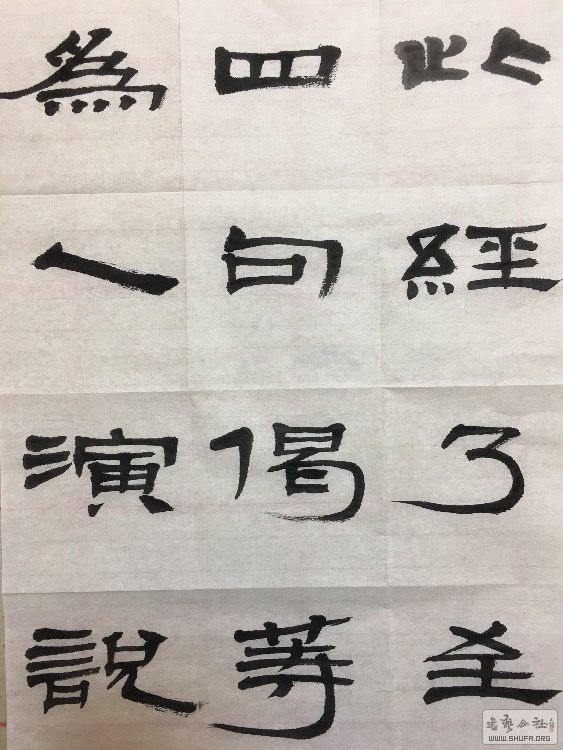 此經乃至
四句偈等
為人演說
書藝公社
WWW.SHUFA.ORG